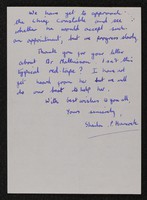 We have yet to approach
the Chief Constable and see
whether he would accept such
an appointment, but we progress slowly.
Thank you for your letter
about Dr Mathieson. Isn't this
typical red-tape? I have not
yet heard from her but we will
do our best to help her.
With best wishes to you all,
Yours sincerely,